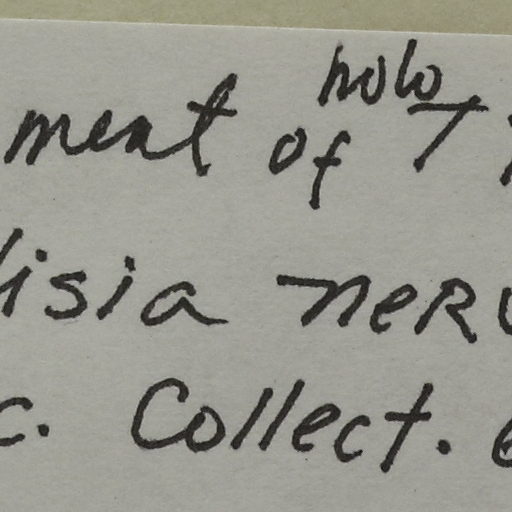 ment of holo T
isia nerv
c. Collect.